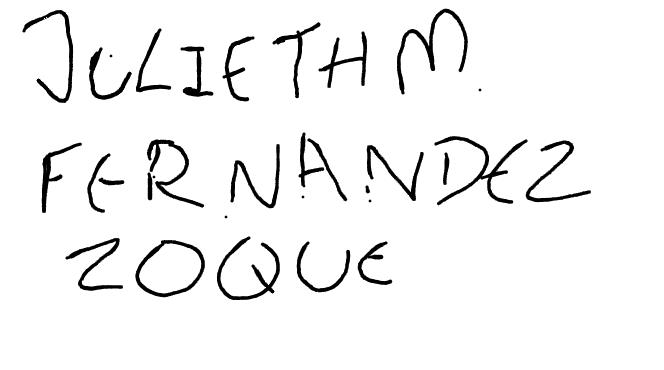 JULIETH M.
FERNANDEZ
ZOQUE